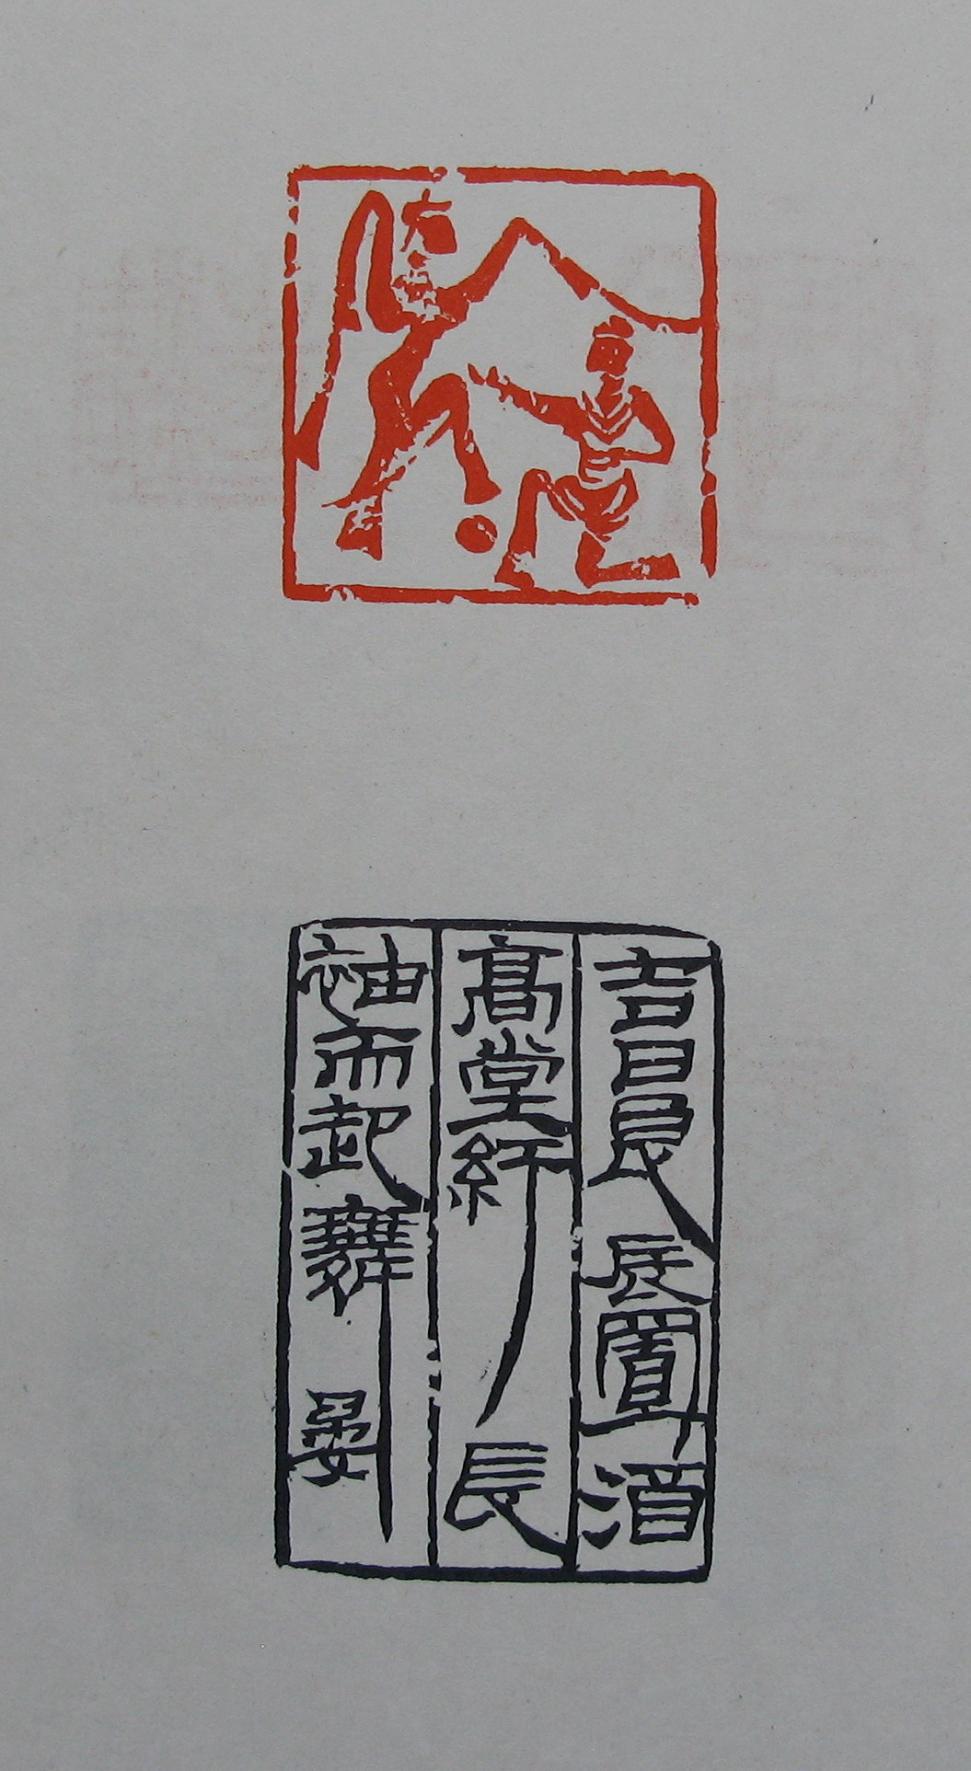 吉日良辰置酒
高堂紆長
袖而起舞